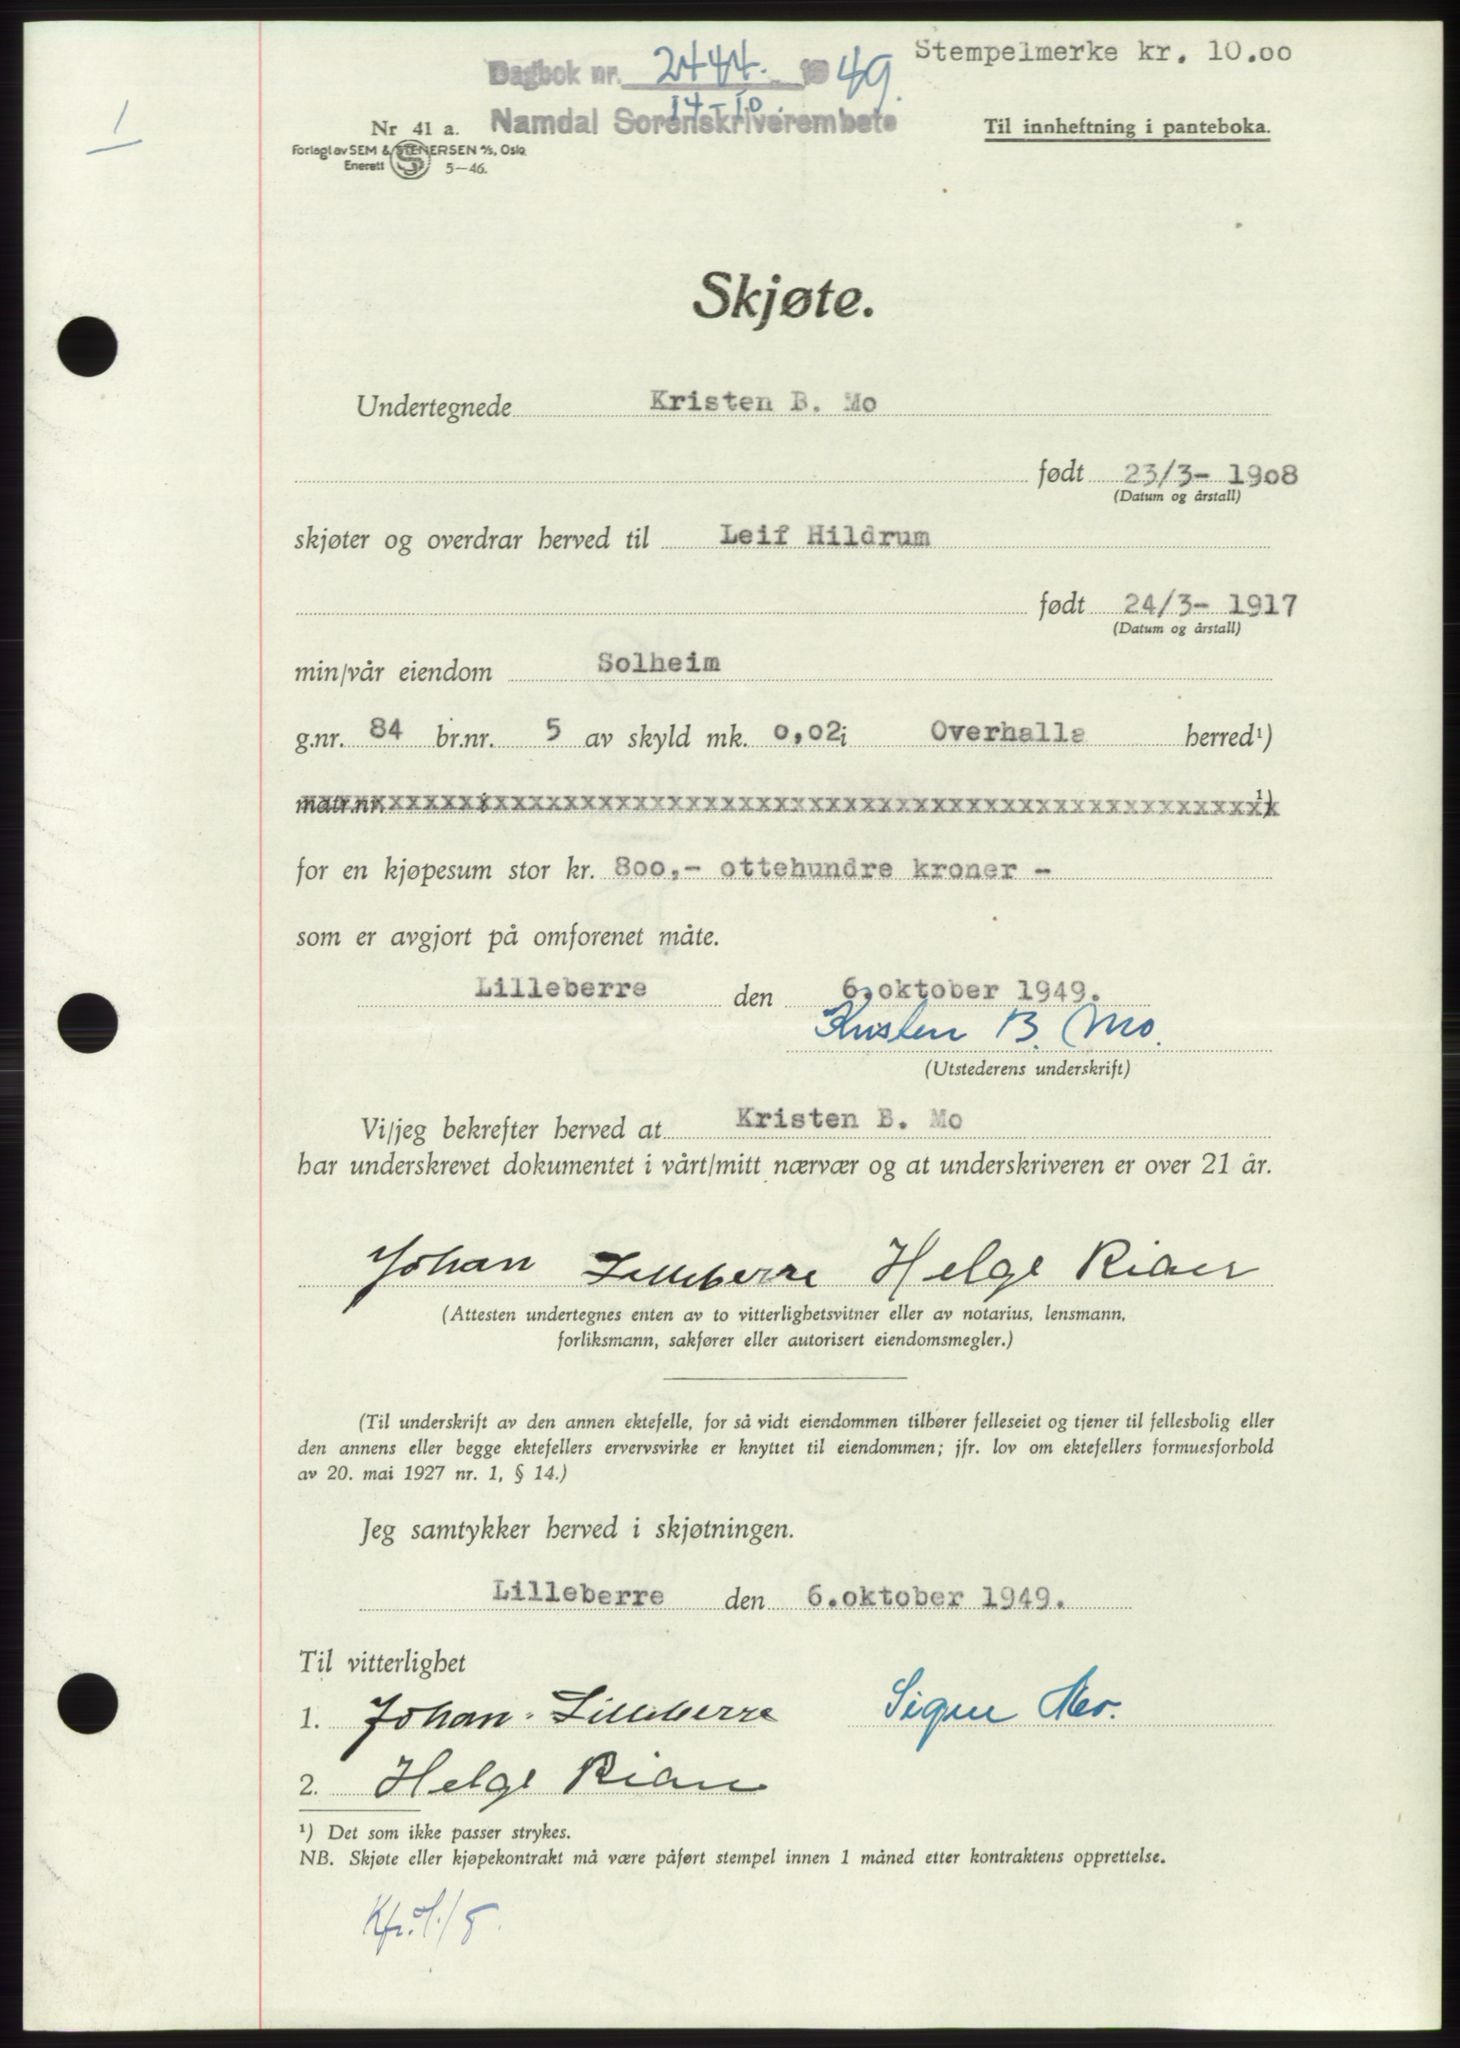 1
Dagbok nr. 2444. 1949.
14-10.
Namdal Sorenskriverembete
Stempelmerke kr. 10.00
Til innheftning i panteboka.
Nr 41 a.
Forlagt av SEM & STENERSEN A/S, Oslo
Enerett S 5—46.
Skjøte.
Undertegnede Kristen B. Mo
født 23/3- 1908
(Datum og årstall)
skjøter og overdrar herved til Leif Hildrum
født 24/3- 1917
(Datum og årstall)
min/vår eiendom Solheim
g.nr. 84 br.nr. 5 av skyld mk. 0,02 i Overhalla herred¹)
matr.nr. i ¹)
for en kjøpesum stor kr. 800,- ottehundre kroner -
som er avgjort på omforenet måte.
Lilleberre den 6.oktober 1949.
Kristen B. Mo.
(Utstederens underskrift)
Vi/jeg bekrefter herved at Kristen B. Mo
har underskrevet dokumentet i vårt/mitt nærvær og at underskriveren er over 21 år.
Johan Lilleberre Helge Rian
(Attesten undertegnes enten av to vitterlighetsvitner eller av notarius, lensmann,
forliksmann, sakfører eller autorisert eiendomsmegler.)
(Til underskrift av den annen ektefelle, for så vidt eiendommen tilhører felleseiet og tjener til fellesbolig eller
den annens eller begge ektefellers ervervsvirke er knyttet til eiendommen; jfr. lov om ektefellers formuesforhold
av 20. mai 1927 nr. 1, § 14.)
Jeg samtykker herved i skjøtningen.
Lilleberre den 6.oktober 1949.
Til vitterlighet
1. Johan Lilleberre Signe Mo.
2. Helge Rian
¹) Det som ikke passer strykes.
NB. Skjøte eller kjøpekontrakt må være påført stempel innen 1 måned etter kontraktens opprettelse.